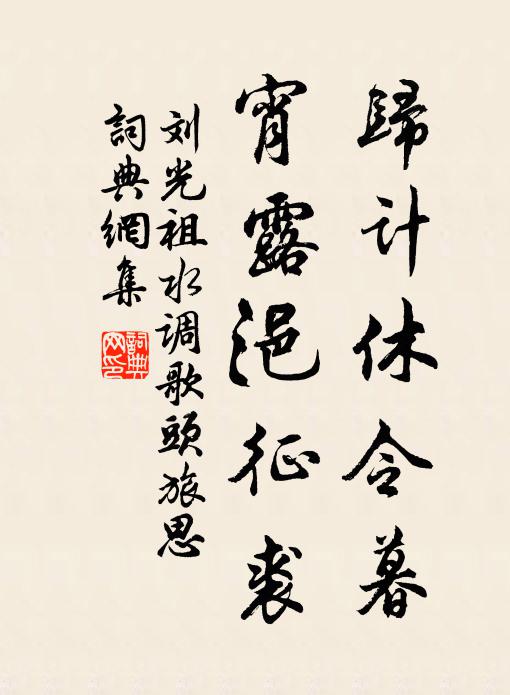 歸計休令暮
宵露浥征裘
刘光祖水调歌頭旅思
詞典網集
詞典网印